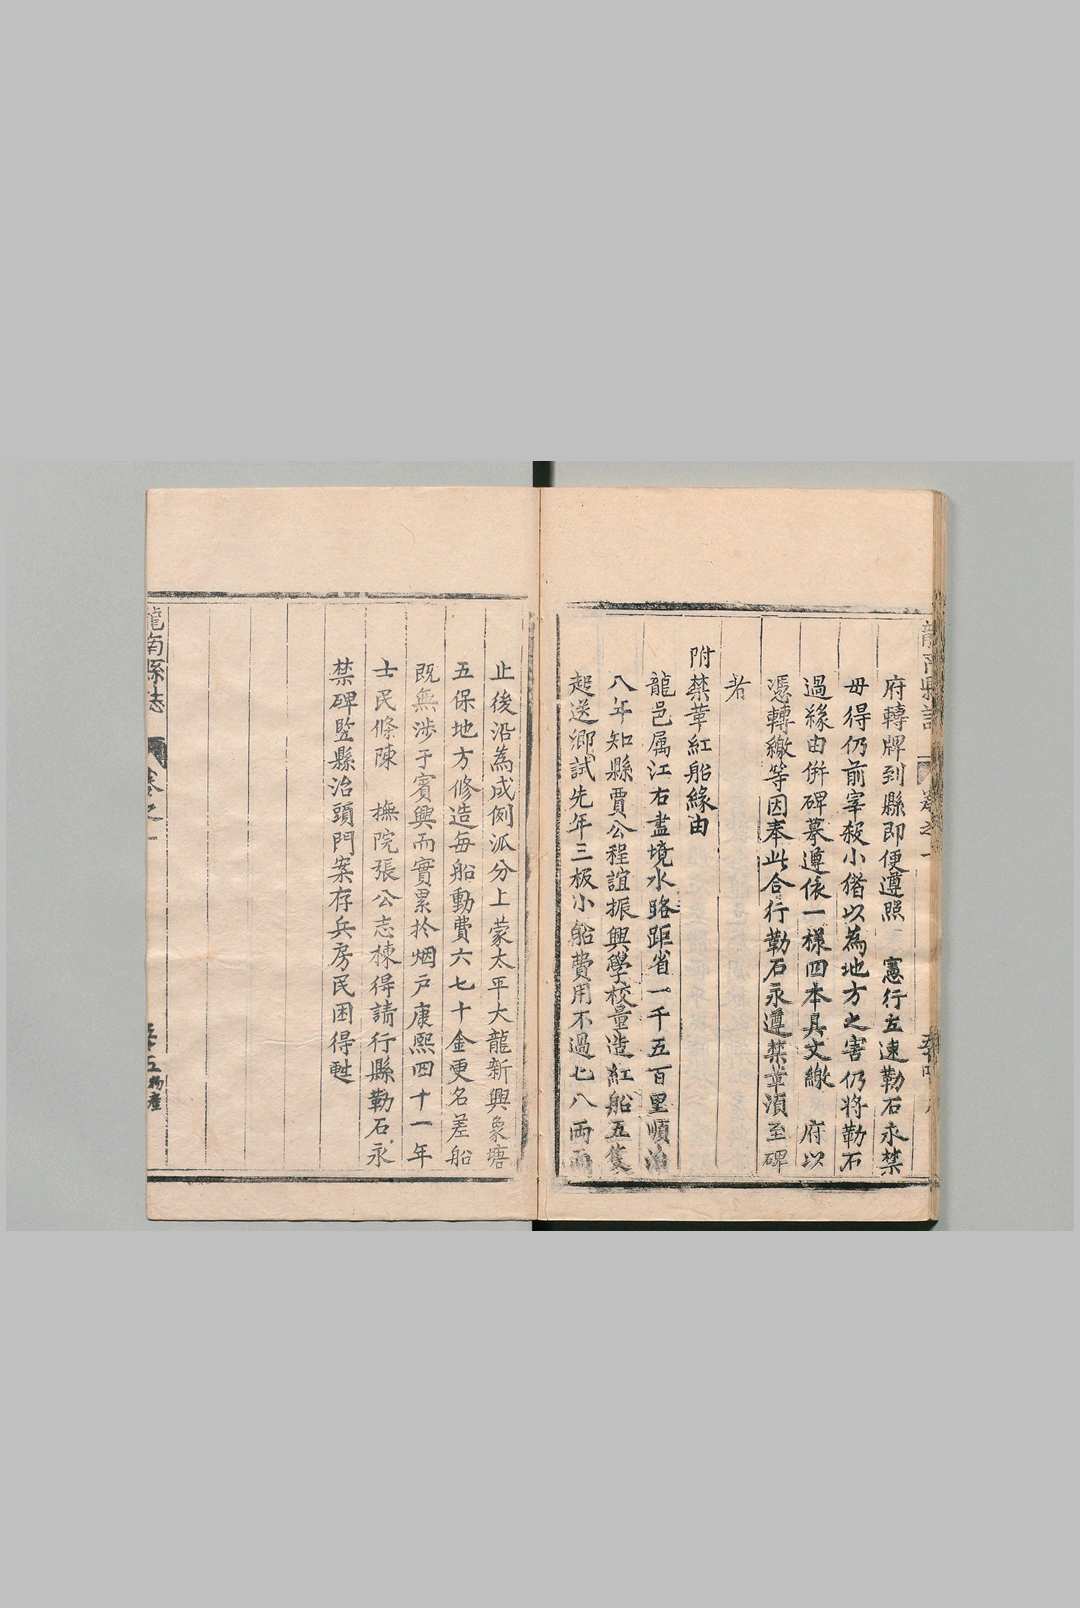 府轉牌到縣即便遵照　憲行立速勒石永禁
毋得仍前宰殺小猪以為地方之害仍將勒石
過緣由併碑摹遵依一樣四本具文繳　府以
憑轉繳等因奉此合行勒石永遵禁革須至碑
者
附禁革紅船緣由
龍邑属江右盡境水路距省一千五百里順治
八年知縣賈公程誼振興學校量造紅船五隻
起送鄉試先年三板小船費用不過七八両而
止後沿為成例派分上蒙太平大龍新興象塘
五保地方修造每船動費六七十金更名差船
既無涉于賓興而實累扵烟户康熙四十一年
士民條陳　撫院張公志棟得請行縣勒石永
禁碑竪縣治頭門案存兵房民困得甦
龍南縣誌
卷之一